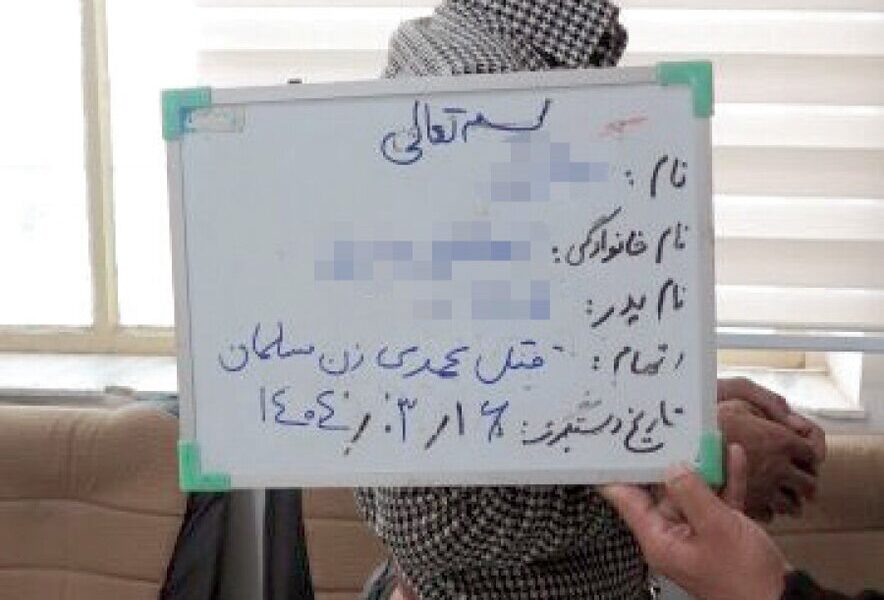 بسمه تعالی
نام :
نام خانوادگی :
نام پدر :
اتهام : قتل عمدی زن مسلمان
تاریخ دستگیری : ۱۴۰۴/۰۳/۱۶